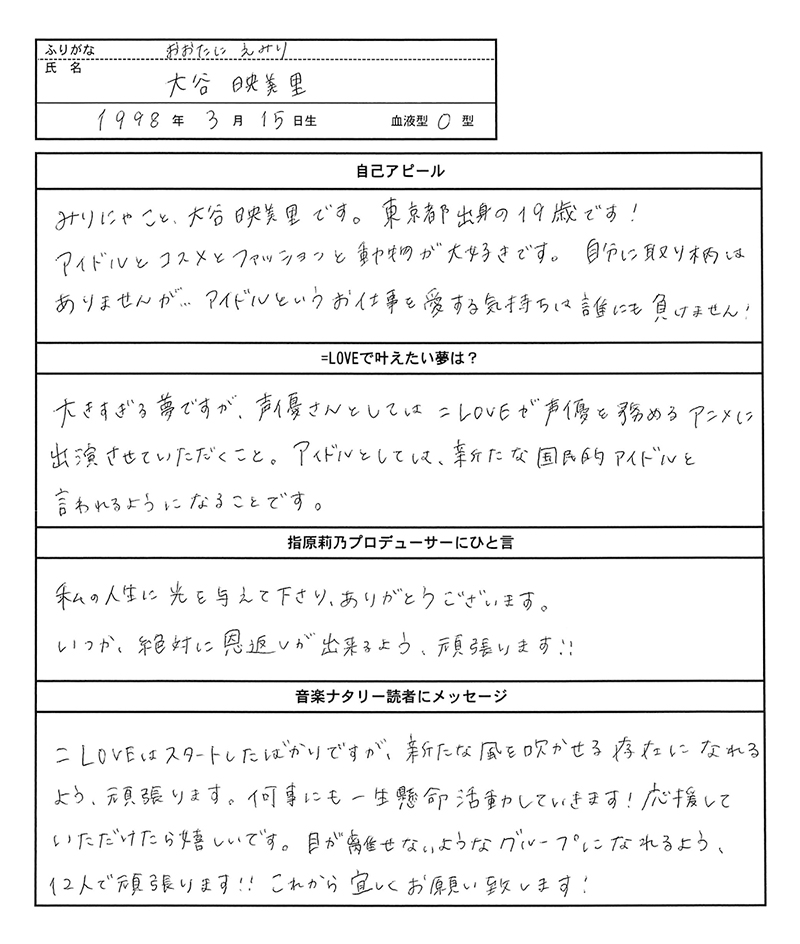 ふりがな おおたに えみり
氏 名 大谷 映美里
1998 年 3 月 15 日生 血液型 O 型
自己アピール
みりにゃこと、大谷映美里です。東京都出身の19歳です！
アイドルとコスメとファッションと動物が大好きです。自分に取り柄は
ありませんが… アイドルというお仕事を愛する気持ちは誰にも負けません！
=LOVEで叶えたい夢は？
大きすぎる夢ですが、声優さんとしては＝LOVEが声優を務めるアニメに
出演させていただくこと。アイドルとしては、新たな国民的アイドルと
言われるようになることです。
指原莉乃プロデューサーにひと言
私の人生に光を与えて下さり、ありがとうございます。
いつか、絶対に恩返しが出来るよう、頑張ります!!
音楽ナタリー読者にメッセージ
＝LOVEはスタートしたばかりですが、新たな風を吹かせる存在になれる
よう、頑張ります。何事にも一生懸命活動していきます！応援して
いただけたら嬉しいです。目が離せないようなグループになれるよう、
12人で頑張ります!! これから宜しくお願い致します！